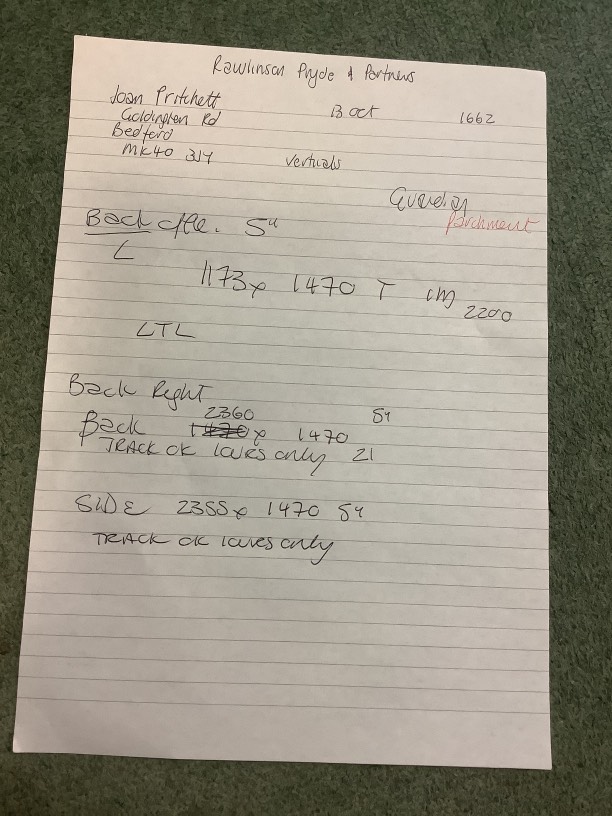 Rawlinson Pryde & Partners
Joan Pritchett
13 Oct 1662
Goldington Rd
Bedford
MK40 3LY Verticals
Parchment
Back 5"
L
1173 x 1470 T 2200
LTL
Back Right
2360 5"
Back 1420 x 1470
TRACK OK louvres only 21
SIDE 2355 x 1470 5"
TRACK OK louvres only